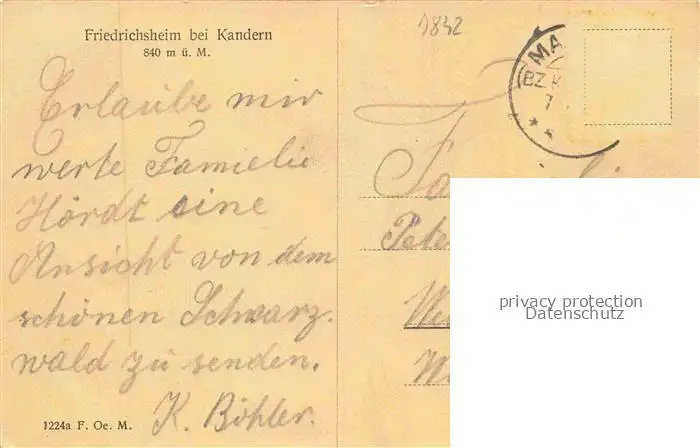 Friedrichsheim bei Kandern
840 m ü. M.
1842
MA
BZ. K
7
Erlaube mir
werte Familie
Hördt eine
Ansicht von dem
schönen Schwarz.
wald zu senden.
K. Böhler.
Fa
Pete
We
W
privacy protection
Datenschutz
1224a F. Oe. M.